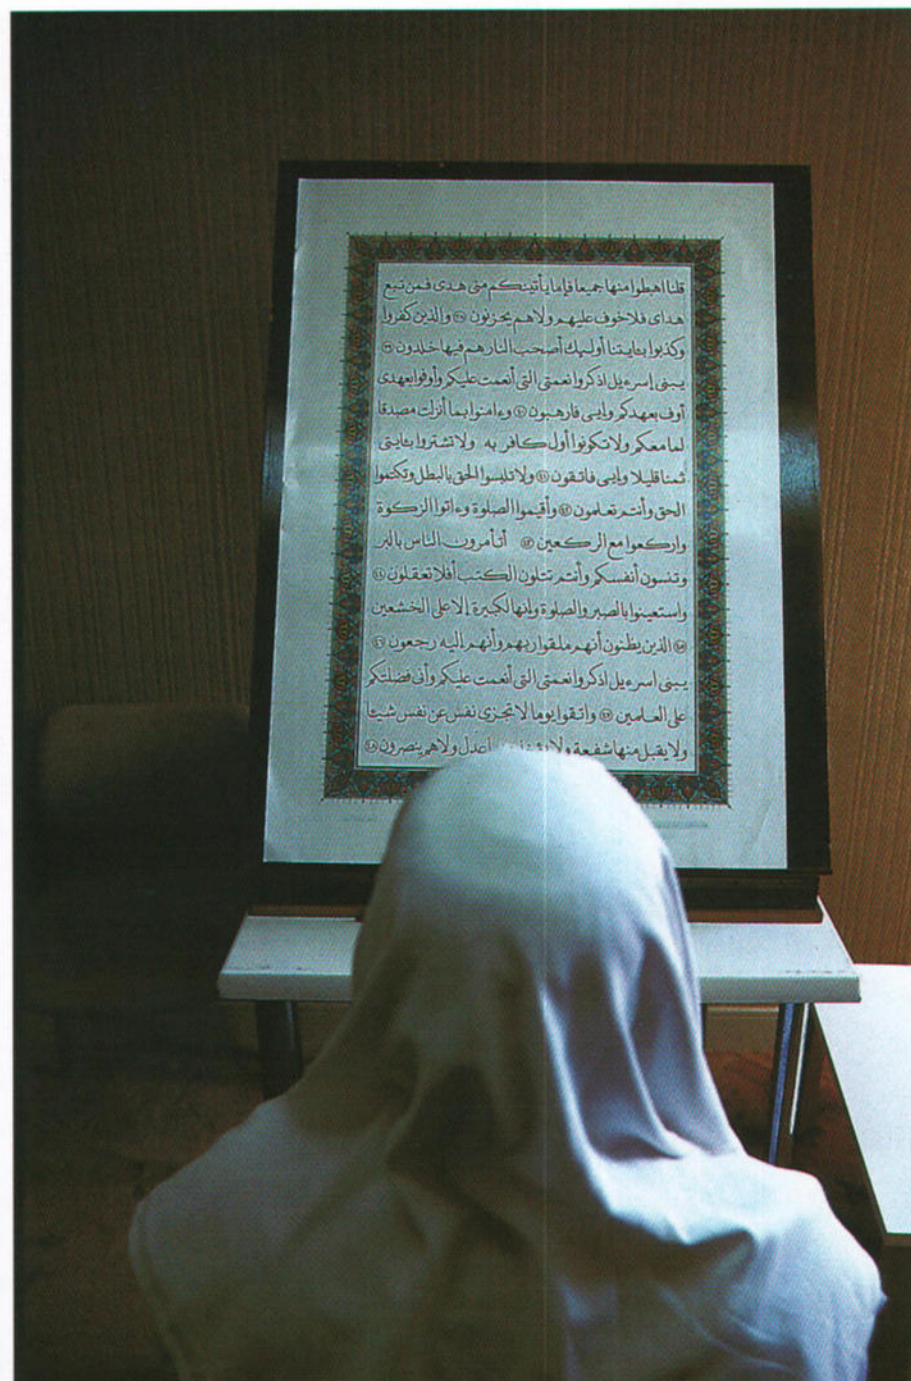 قلنا اهبطوا منها جميعا فإما يأتينكم منى هدى فمن تبع
هداى فلا خوف عليهم ولا هم يحزنون ٣٨ والذين كفروا
وكذبوا بـٔايـتنا أولـئك أصحب النار هم فيها خلدون ٣٩
يـبنى إسرءيل اذكروا نعمتى التى أنعمت عليكم وأوفوا بعهدى
أوف بعهدكم وإيـى فارهبون ٤٠ وءامنوا بما أنزلت مصدقا
لما معكم ولا تكونوا أول كافر به ولا تشتروا بـٔايـتى
ثمنا قليلا وإيـى فاتقون ٤١ ولا تلبسوا الحق بالبطل وتكتموا
الحق وأنتم تعلمون ٤٢ وأقيموا الصلوة وءاتوا الزكوة
واركعوا مع الركعين ٤٣ أتأمرون الناس بالبر
وتنسون أنفسكم وأنتم تتلون الكتب أفلا تعقلون ٤٤
واستعينوا بالصبر والصلوة وإنها لكبيرة إلا على الخشعين
٤٥ الذين يظنون أنهم ملقوا ربهم وأنهم إليه رجعون ٤٦
يـبنى إسرءيل اذكروا نعمتى التى أنعمت عليكم وأنى فضلتكم
على العلمين ٤٧ واتقوا يوما لا تجزى نفس عن نفس شيـٔا
ولا يقبل منها شفعة ولا عدل ولا هم ينصرون ٤٨